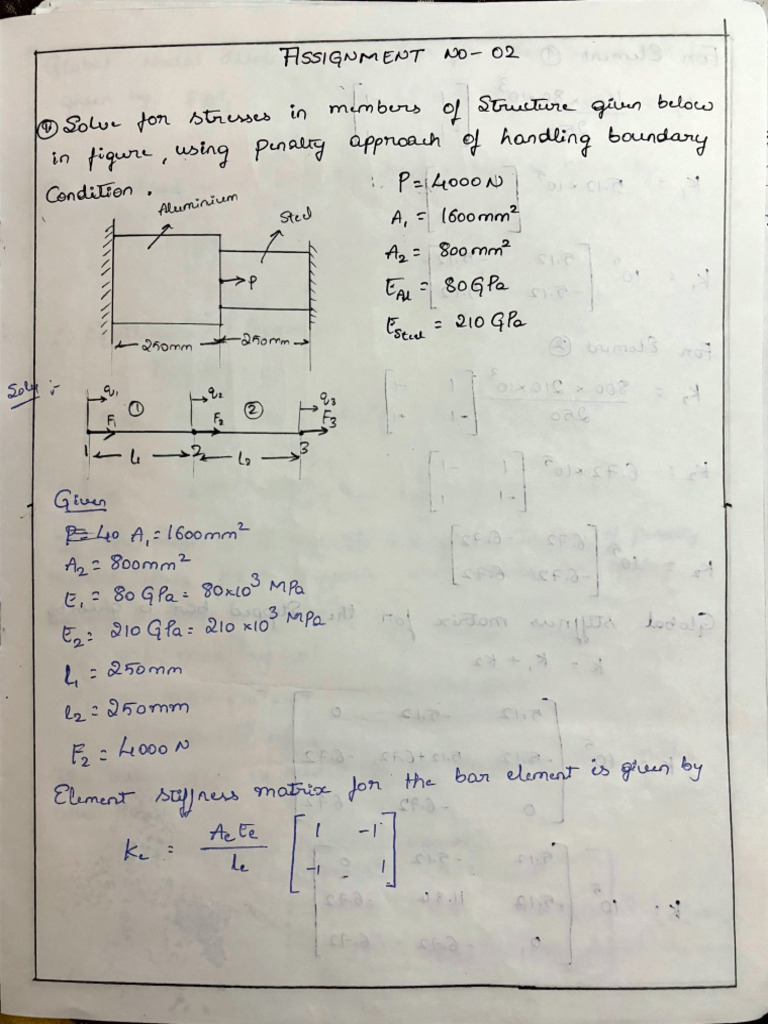 ASSIGNMENT NO-02
① Solve for stresses in members of Structure given below
in figure, using penalty approach of handling boundary
Condition.
∴ P = 4000 N
A₁ = 1600 mm²
A₂ = 800 mm²
E_Al = 80 GPa
E_Steel = 210 GPa
Aluminium
Steel
P
250mm
250mm
Soln :-
q₁ ① q₂ ② q₃
F₁ F₂ F₃
1 l₁ 2 l₂ 3
Given
A₁ = 1600mm²
A₂ = 800mm²
E₁ = 80 GPa = 80×10³ MPa
E₂ = 210 GPa = 210×10³ MPa
l₁ = 250mm
l₂ = 250mm
F₂ = 4000 N
Element stiffness matrix for the bar element is given by
Ke = AeEe/le [1 -1
-1 1]